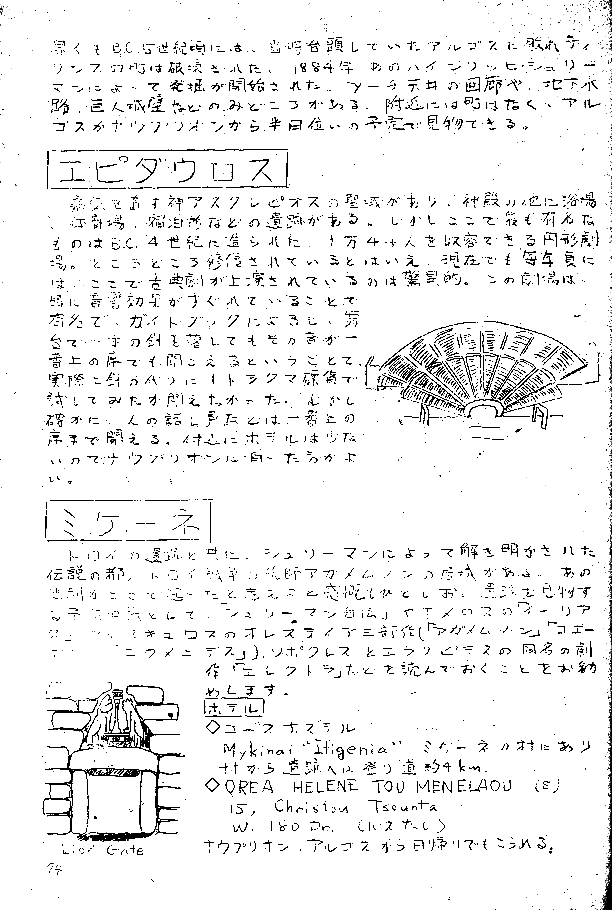 早くもB.C.5世紀頃には、当時台頭していたアルゴスに敗れティ
リンスの町は破壊された。1884年、あのハインリッヒ・シュリー
マンによって発掘が開始された。アーチ天井の回廊や、地下水
路、巨人城壁などのみどころがある。附近には町はなく、アル
ゴスかナウプリオンから半日位いの予定で見物できる。
エピダウロス
病気を直す神アスクレピオスの聖域があり、神殿の他に浴場
、体育場、宿泊所などの遺跡がある。しかしここで最も有名な
ものはB.C.4世紀に造られた、1万4千人を収容できる円形劇
場。ところどころ修復されているとはいえ、現在でも毎年夏に
は、ここで古典劇が上演されているのは驚異的。この劇場は、
特に音響効果がすぐれていることで
有名で、ガイドブックによると、舞
台で一本の針を落してもその音が一
番上の席でも聞こえるということで、
実際に針の代りに1ドラクマ硬貨で
試してみたが聞えなかった。しかし
確かに、人の話し声などは一番上の
席まで聞える。付近にホテルは少な
いのでナウプリオンに泊った方がよ
い。
ミケーネ
トロイの遺跡と共に、シュリーマンによって解き明かされた
伝説の都。トロイ戦争の総師アガメムノンの居城がある。あの
ここで
る予備知識として、「シュリーマン自伝」やホメロスの「イーリア
ス」、アイスキュロスのオレステイア三部作(「アガメムノン」「コエー
「エウメニデス」)、ソポクレスとエウリピデスの同名の劇
作「エレクトラ」などを読んでおくことをお勧
めします。
ホテル
◇ユースホステル
Mykinai "Ifigenia" ミケーネの村にあり
村から遺跡へは登り道約4km.
◇OREA HELENE TOU MENELAOU (E)
15, Christou Tsounta
W. 180 Dr. (バスなし)
ナウプリオン、アルゴスから日帰りでもこられる。
Lion Gate
74